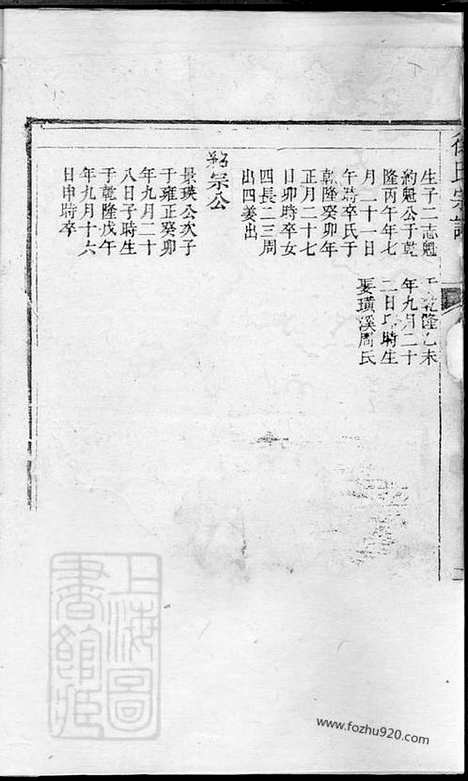 氏宗譜
生子二志魁
約魁公于乾
隆丙午年七
月二十一日
午時卒氏于
乾隆癸卯年
正月二十七
日卯時卒女
四長二三周
出四姜出
乾隆乙未
年九月二十
二日 時生
娶璜溪周氏
宗公
景瑛公次子
于雍正癸卯
年九月二十
八日子時生
于乾隆戊午
年九月十六
日申時卒
上海圖
書館
www.fozhu920.com